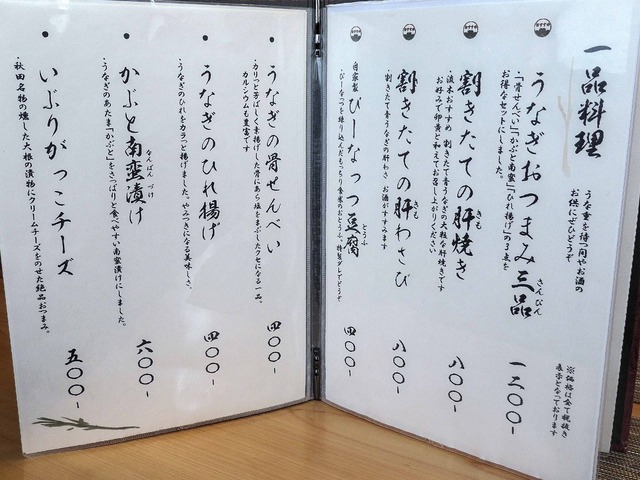 一品料理
うな重を待つ間やお酒の
お供にぜひどうぞ
※価格は全て税抜き
表示となっております
おすすめ
うなぎおつまみ三品
さんぴん
一二〇〇~
・「骨せんべい」「かぶと南蛮」「ひれ揚げ」の3点を
お得なセットにしました。
おすすめ
割きたての肝焼き
きも
八〇〇~
・流木おすすめ 割きたて青うなぎの大粒な肝焼きです
お好みで卵黄と和えてお召し上がりください
おすすめ
割きたての肝わさび
きも
八〇〇~
・割きたて青うなぎの肝わさ お酒がすすみます
おすすめ
自家製
ぴーなっつ豆腐
とうふ
四〇〇~
・ぴーなつを練り込んだもっちり食感のおとうふ、特製ダレでどうぞ
うなぎの骨せんべい
四〇〇~
・カリっと芳ばしく素揚げした骨にあら塩をまぶしたクセになる一品。
カルシウムも豊富です
うなぎのひれ揚げ
四〇〇~
・うなぎのひれをカラっと揚げました。やみつきになる美味しさ。
かぶと南蛮漬け
なんばんづけ
六〇〇~
・うなぎのあたま「かぶと」をさっぱりと食べやすい南蛮漬けにしました。
いぶりがっこチーズ
五〇〇~
・秋田名物の燻した大根の漬物にクリームチーズをのせた絶品おつまみ。